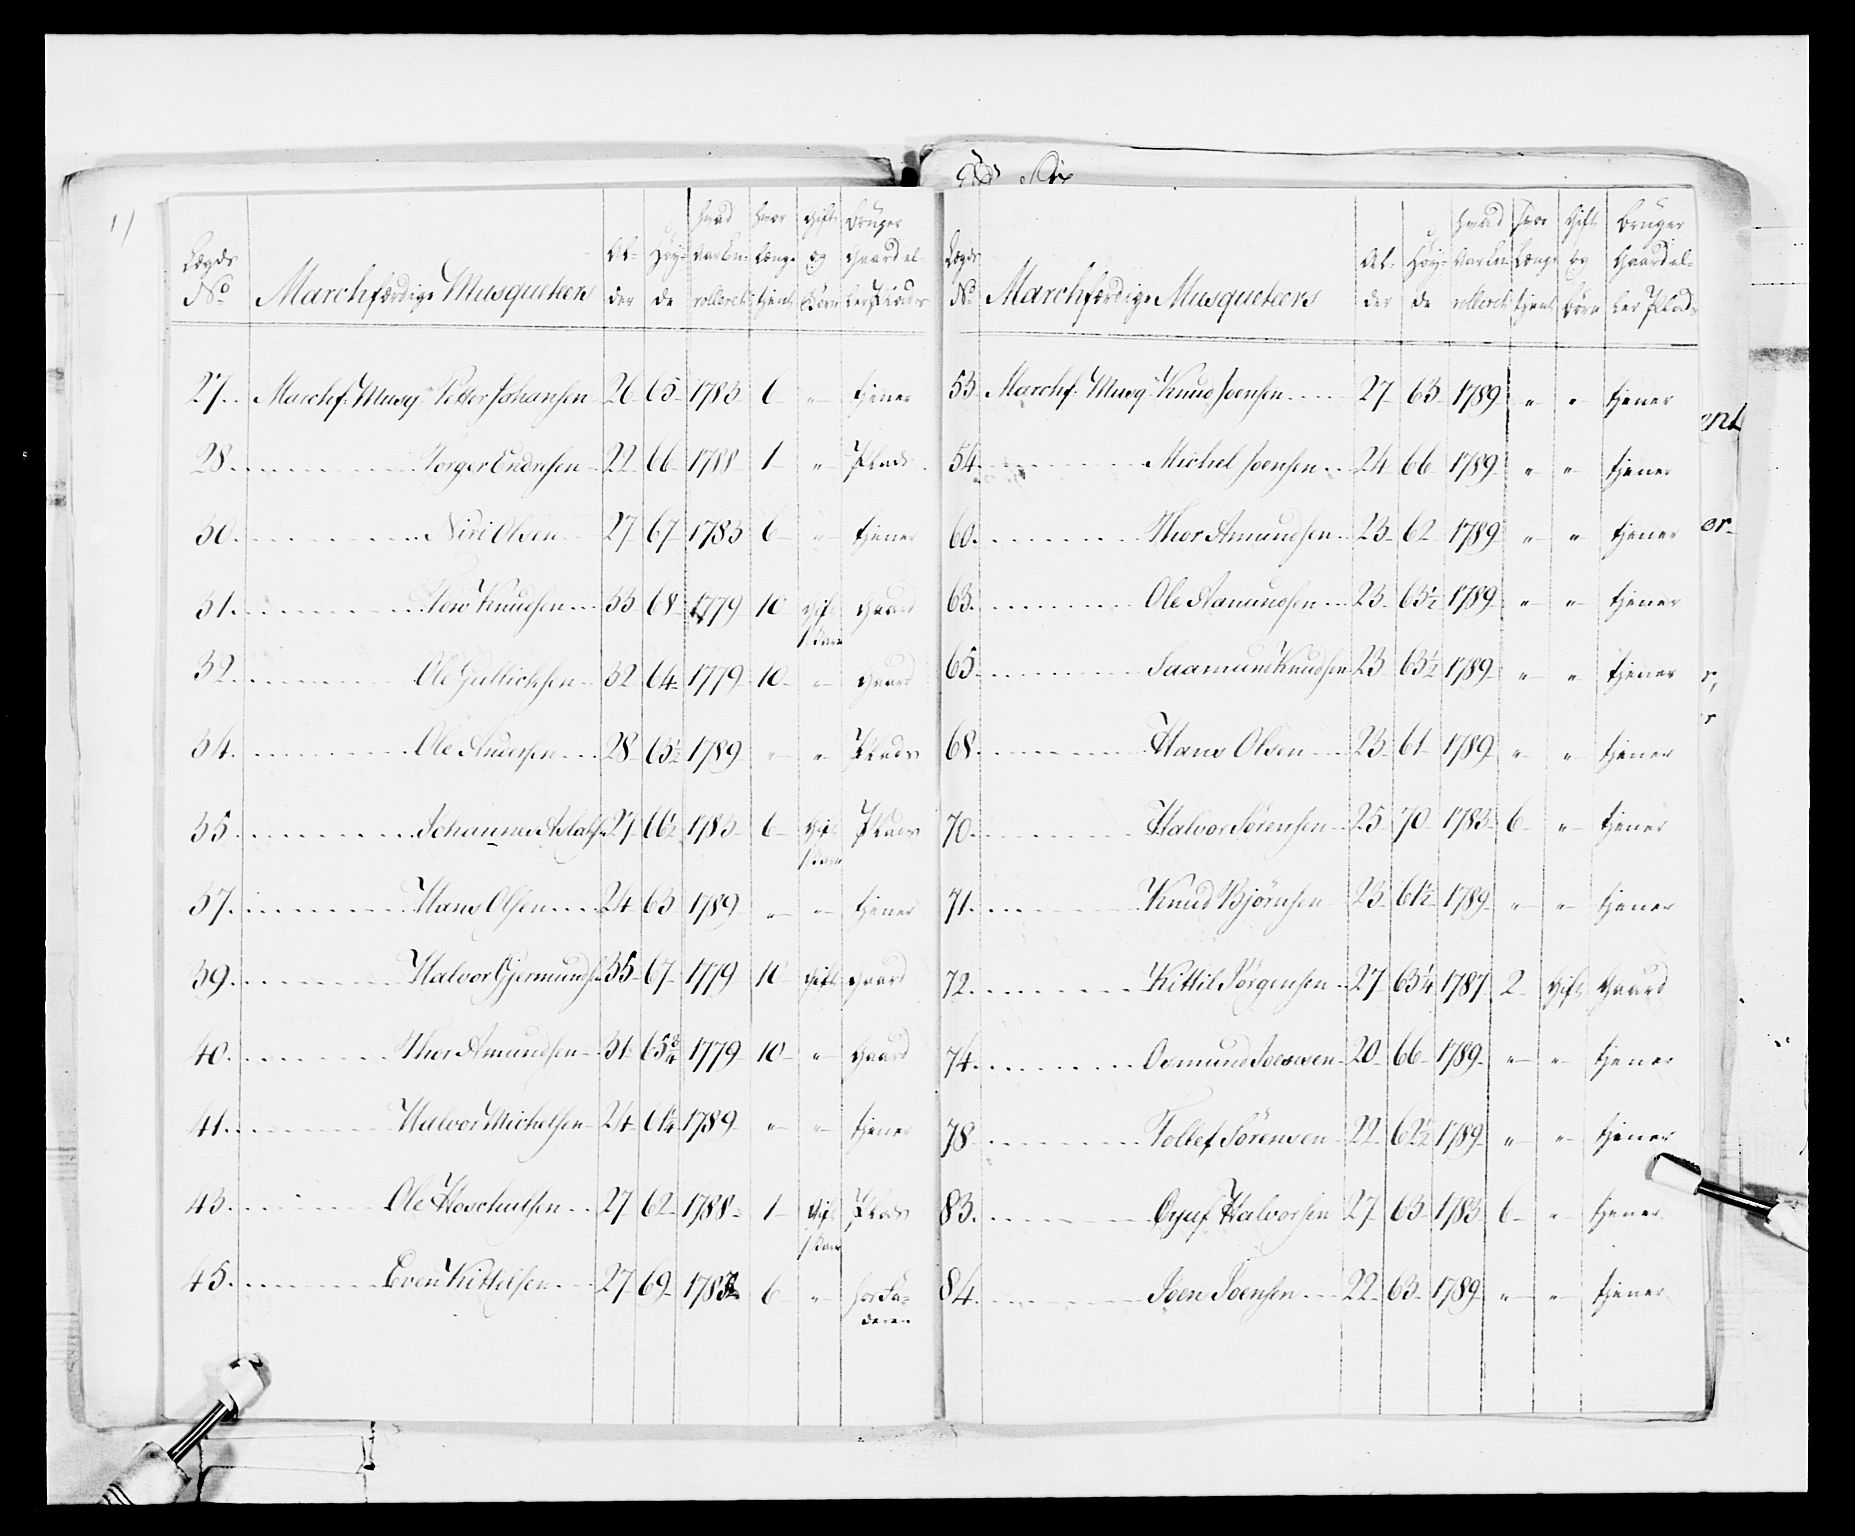 Lægds No | Marchfærdige Musqueteers | Al-der | Høy-de | hvad Aar En-rolleret | hvor Længe tjent | Gift og Børn | Bruger Gaard el-ler Plads
27. Marchf: Musqr Petter Johansen 26 65 1783 6 " tjener
28. Torger Endresen 22 66 1788 1 " Plads
30. Niri Olsen 27 67 1783 6 " tjener
31. Tov Knudsen 33 68 1779 10 Gift Gaard
1 Barn
32. Ole Gullichsen 32 64 1779 10 " Gaard
34. Ole Andersen 28 63½ 1789 " " Plads
35. Johannes Aslaks. 27 66½ 1783 6 Gift Plads
1 Barn
37. Hans Olsen 24 63 1789 " " tjener
39. Halvor Gjermunds. 35 67 1779 10 Gift Gaard
40. Thor Amundsen 31 65¾ 1779 10 " Gaard
41. Halvor Michelsen 24 61¼ 1789 " " tjener
43. Ole Hoschulsen 27 62 1788 1 Gift Plads
1 Barn
45. Even Kittelsen 27 69 1783 6 " hos Fa-
deren
Lægds No | Marchfærdige Musqueteers | Al-der | Høy-de | hvad Aar En-rolleret | hvor Længe tjent | Gift og Børn | Bruger Gaard el-ler Plads
53 Marchf. Musqr Knud Joensen 27 63 1789 " " tjener
54. Michel Joensen 24 66 1789 " " tjener
60. Thor Amundsen 23 62 1789 " " tjener
63. Ole Aamundsen 23 63½ 1789 " " tjener
65. Saamund Knudsen 23 63½ 1789 " " tjener
68. Hans Olsen 23 61 1789 " " tjener
70. Halvor Sørensen 25 70 1783 6 " tjener
71. Knud Bjørnsen 23 61½ 1789 " " tjener
72. Kittil Jørgensen 27 63¼ 1787 2 Gift Gaard
74. Osmund Joensen 20 66 1789 " " tjener
78. Tollef Sørensen 22 62½ 1789 " " tjener
83. Halvorsen 27 63 1783 6 " tjener
84. Joen Joensen 22 63 1789 " " tjener